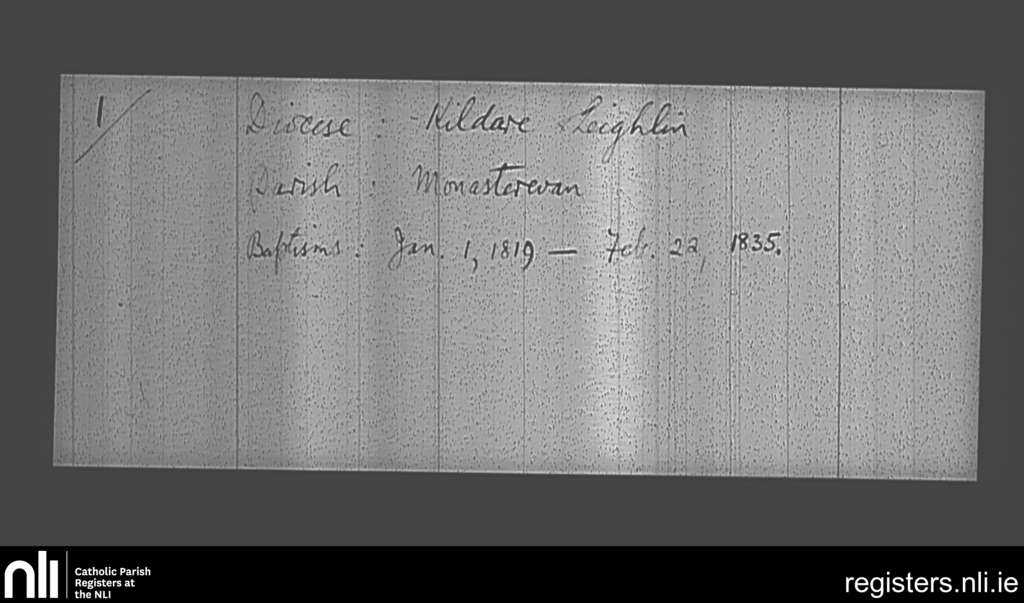 1/
Diocese : Kildare & Leighlin
Parish : Monasterevan
Baptisms : Jan. 1, 1819 — Feb. 22, 1835.
nli
Catholic Parish
Registers at
the NLI
registers.nli.ie